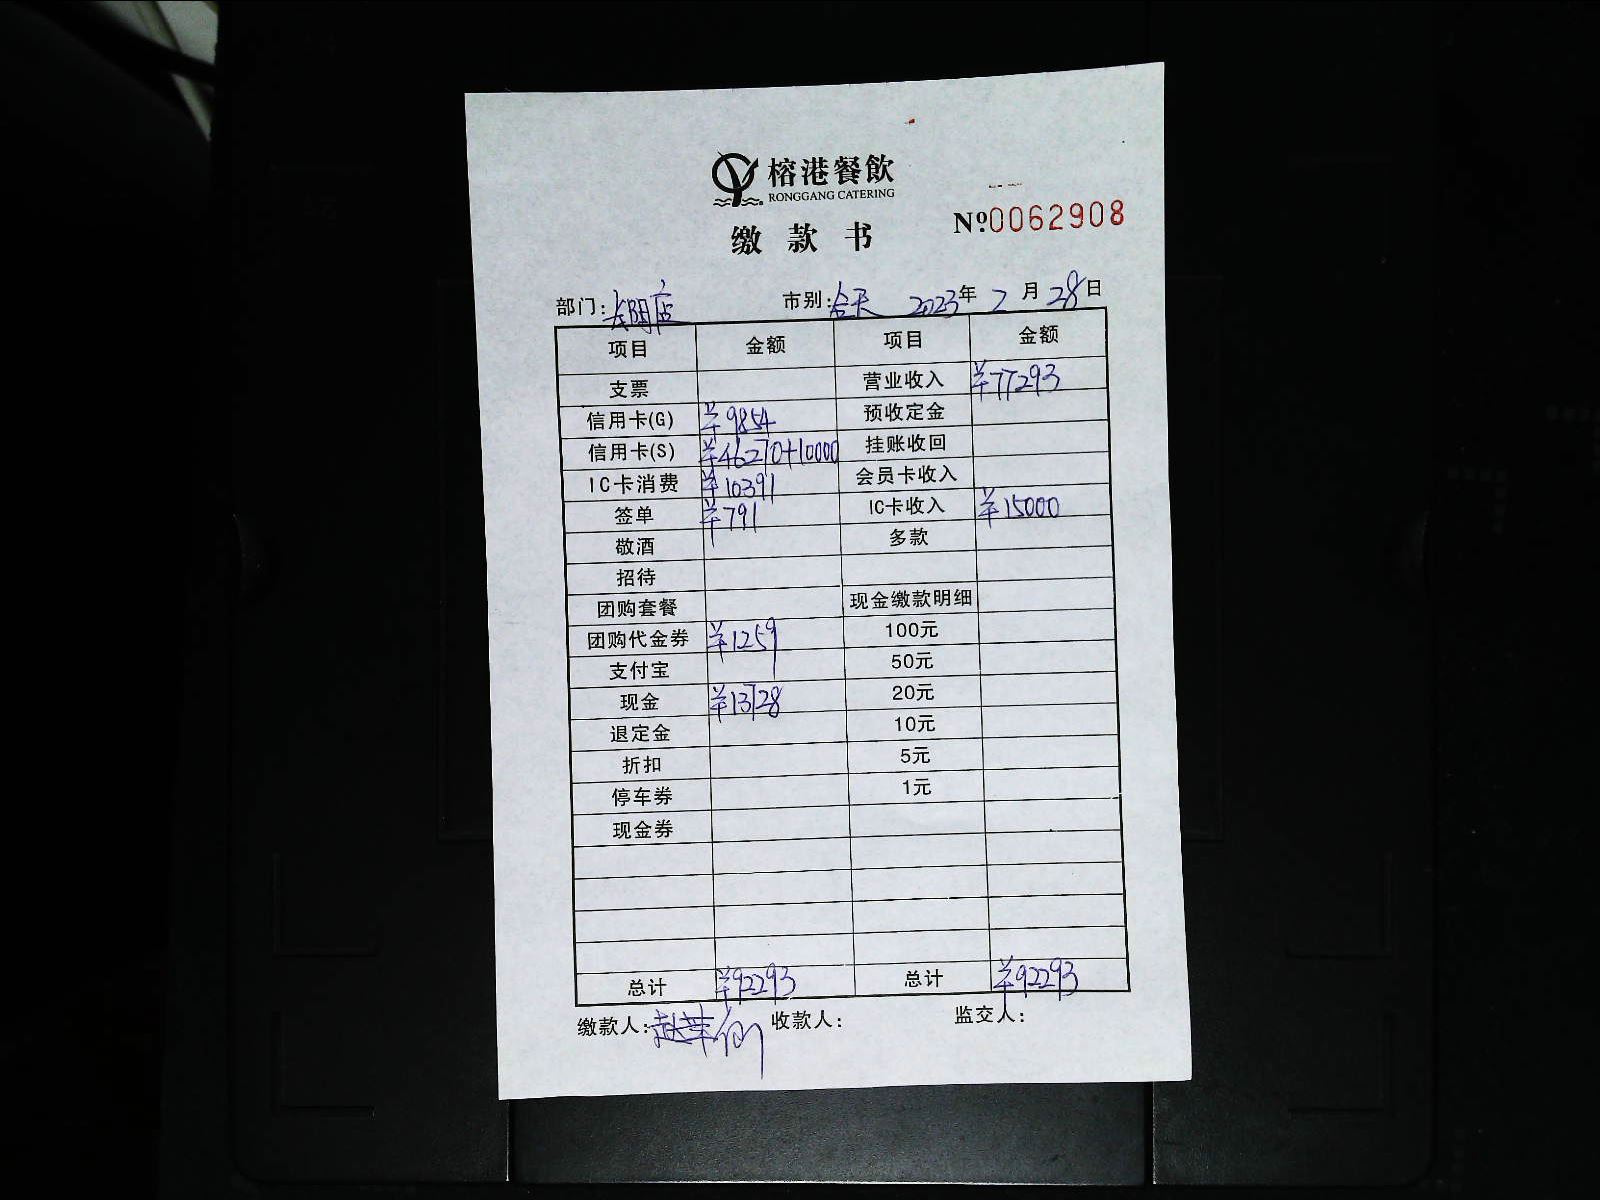 榕港餐飲
RONGGANG CATERING
缴款书
Nº:0062908
部门:长阳店 市别:全天 2023年 2月 28日
项目 金额 项目 金额
支票 营业收入 ¥77293
信用卡(G) ¥9854 预收定金
信用卡(S) ¥46270+10000 挂账收回
IC卡消费 ¥10391 会员卡收入
签单 ¥791 IC卡收入 ¥15000
敬酒 多款
招待
团购套餐 现金缴款明细
团购代金券 ¥1259 100元
支付宝 50元
现金 ¥13728 20元
退定金 10元
折扣 5元
停车券 1元
现金券
总计 ¥92293 总计 ¥92293
缴款人:赵 收款人: 监交人: